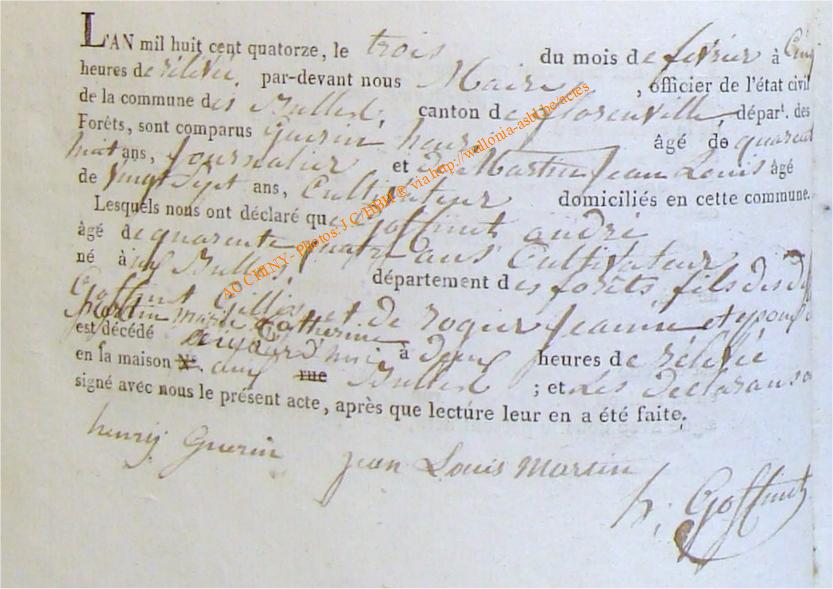 L'AN mil huit cent quatorze, le trois du mois de fevrier à Cinq
heures de rélévé, par-devant nous Maire, officier de l'état civil
de la commune des Bulles, canton de florenville, départ. des
Forêts, sont comparus Guerin henri âgé de quarente
huit ans, Journalier et Martin Jean Louis âgé
de vingt Sept ans, Cultivateur domiciliés en cette commune.
Lesquels nous ont déclaré que Goffinet andré
âgé de quarente quatre ans Cultivateur
né à aux Bulles département des forêts, fils des
Goffinet Gilles et de rogier Jeanne et epoux
Martin marie Catherine
est décédé aujourd'huis à deux heures de rélévée
en sa maison N.° aux rue Bulles ; et les declarans
signé avec nous le présent acte, après que lecture leur en a été faite.
henrij Guerin jean Louis martin
h, Goffinet
AO CHINY - Photos: J.C HBH © via http://wallonia-asbl.be/actes